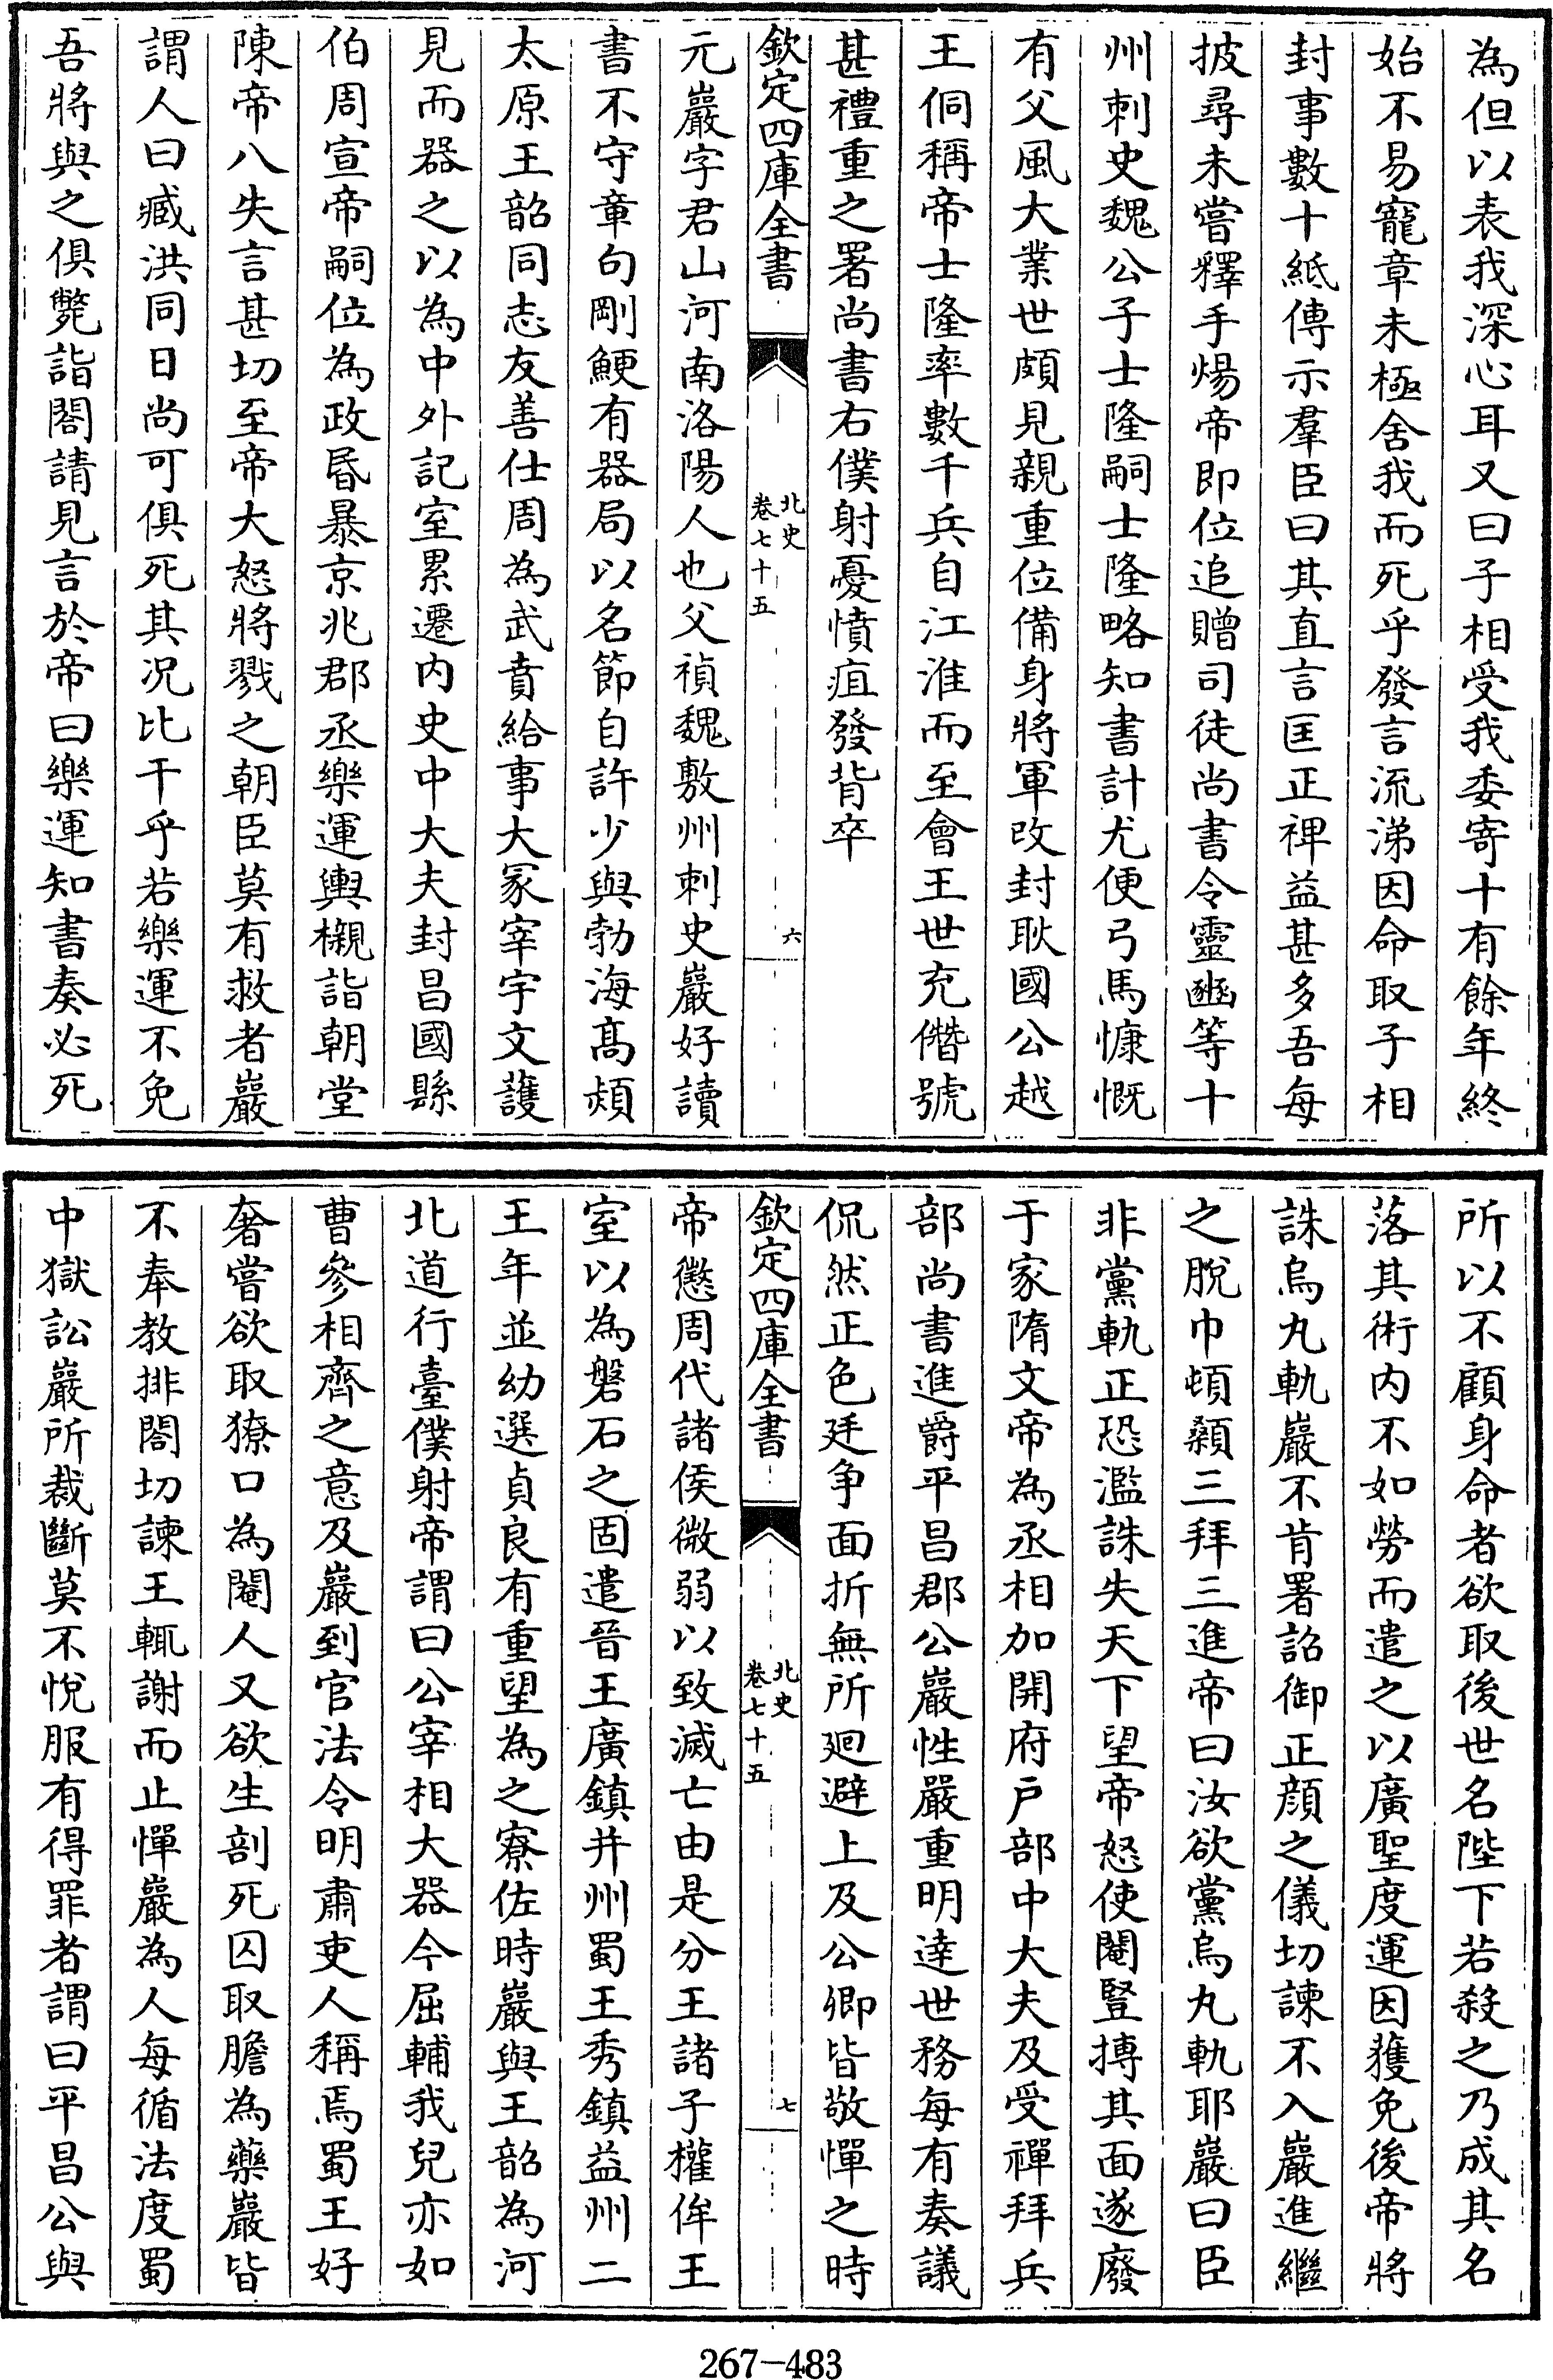 為但以表我深心耳又曰子相受我委寄十有餘年終
始不易寵章未極舍我而死乎發言流涕因命取子相
封事數十紙傳示羣臣曰其直言匡正裨益甚多吾每
披尋未嘗釋手煬帝即位追贈司徒尚書令靈豳等十
州刺史魏公子士隆嗣士隆略知書計尤便弓馬慷慨
有父風大業世頗見親重位備身將軍改封耿國公越
王侗稱帝士隆率數千兵自江淮而至會王世充僭號
甚禮重之署尚書右僕射憂憤疽發背卒
欽定四庫全書
北史
卷七十五
六
元巖字君山河南洛陽人也父禎魏敷州刺史巖好讀
書不守章句剛鯁有器局以名節自許少與勃海髙熲
太原王韶同志友善仕周為武賁給事大冢宰宇文䕶
見而器之以為中外記室累遷內史中大夫封昌國縣
伯周宣帝嗣位為政昏暴京兆郡丞樂運輿櫬詣朝堂
陳帝八失言甚切至帝大怒將戮之朝臣莫有救者巖
謂人曰臧洪同日尚可俱死其况比干乎若樂運不免
吾將與之俱斃詣閤請見言於帝曰樂運知書奏必死
所以不顧身命者欲取後世名陛下若殺之乃成其名
落其術内不如勞而遣之以廣聖度運因獲免後帝將
誅烏丸軌巖不肯署詔御正顔之儀切諫不入巖進繼
之脫巾頓顙三拜三進帝曰汝欲黨烏丸軌耶巖曰臣
非黨軌正恐濫誅失天下望帝怒使閹豎搏其面遂廢
于家隋文帝為丞相加開府戸部中大夫及受禪拜兵
部尚書進爵平昌郡公巖性嚴重明達世務每有奏議
侃然正色廷争面折無所廻避上及公卿皆敬憚之時
欽定四庫全書
北史
卷七十五
七
帝懲周代諸侯微弱以致滅亡由是分王諸子權侔王
室以為磐石之固遣晉王廣鎮并州蜀王秀鎮益州二
王年並幼選貞良有重望為之寮佐時巖與王韶為河
北道行臺僕射帝謂曰公宰相大器今屈輔我兒亦如
曹參相齊之意及巖到官法令明肅吏人稱焉蜀王好
奢嘗欲取獠口為閹人又欲生剖死囚取膽為藥巖皆
不奉教排閤切諫王輒謝而止憚巖為人每循法度蜀
中獄訟巖所裁斷莫不悅服有得罪者謂曰平昌公與
267-483